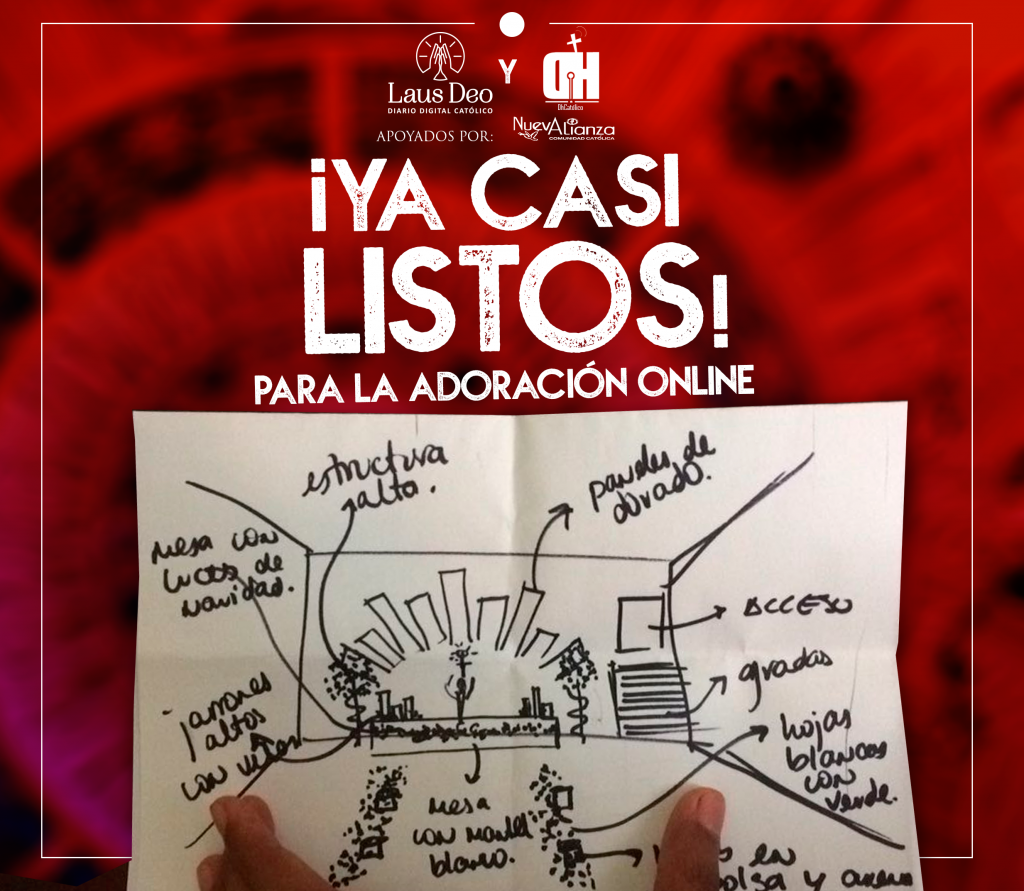 Laus Deo
DIARIO DIGITAL CATÓLICO
Y
OH
OhCatólico
APOYADOS POR:
NuevAlianza
COMUNIDAD CATÓLICA
¡YA CASI
LISTOS!
PARA LA ADORACIÓN ONLINE
estructura
alta.
paneles de
dorado.
mesa con
luces de
navidad.
ACCESO
gradas
jarrones
altos
con velas
hojas
blancas
con
verde.
mesa
con mantel
blanco.
en
bolsa y arena